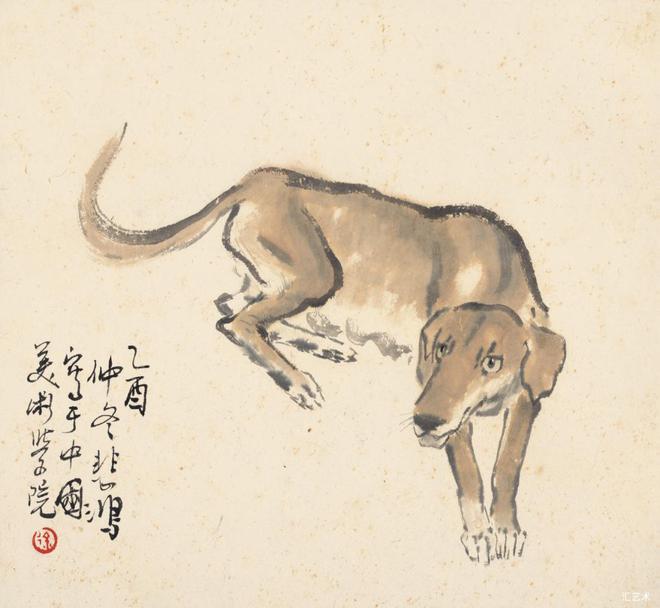 乙酉
仲冬悲鸿
写于中國
美术学院
徐
汇艺术